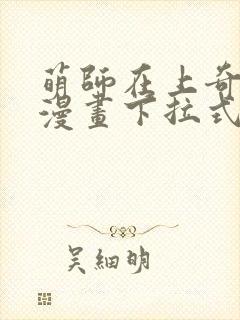 萌師在上奇
漫畫下拉式
吴細明